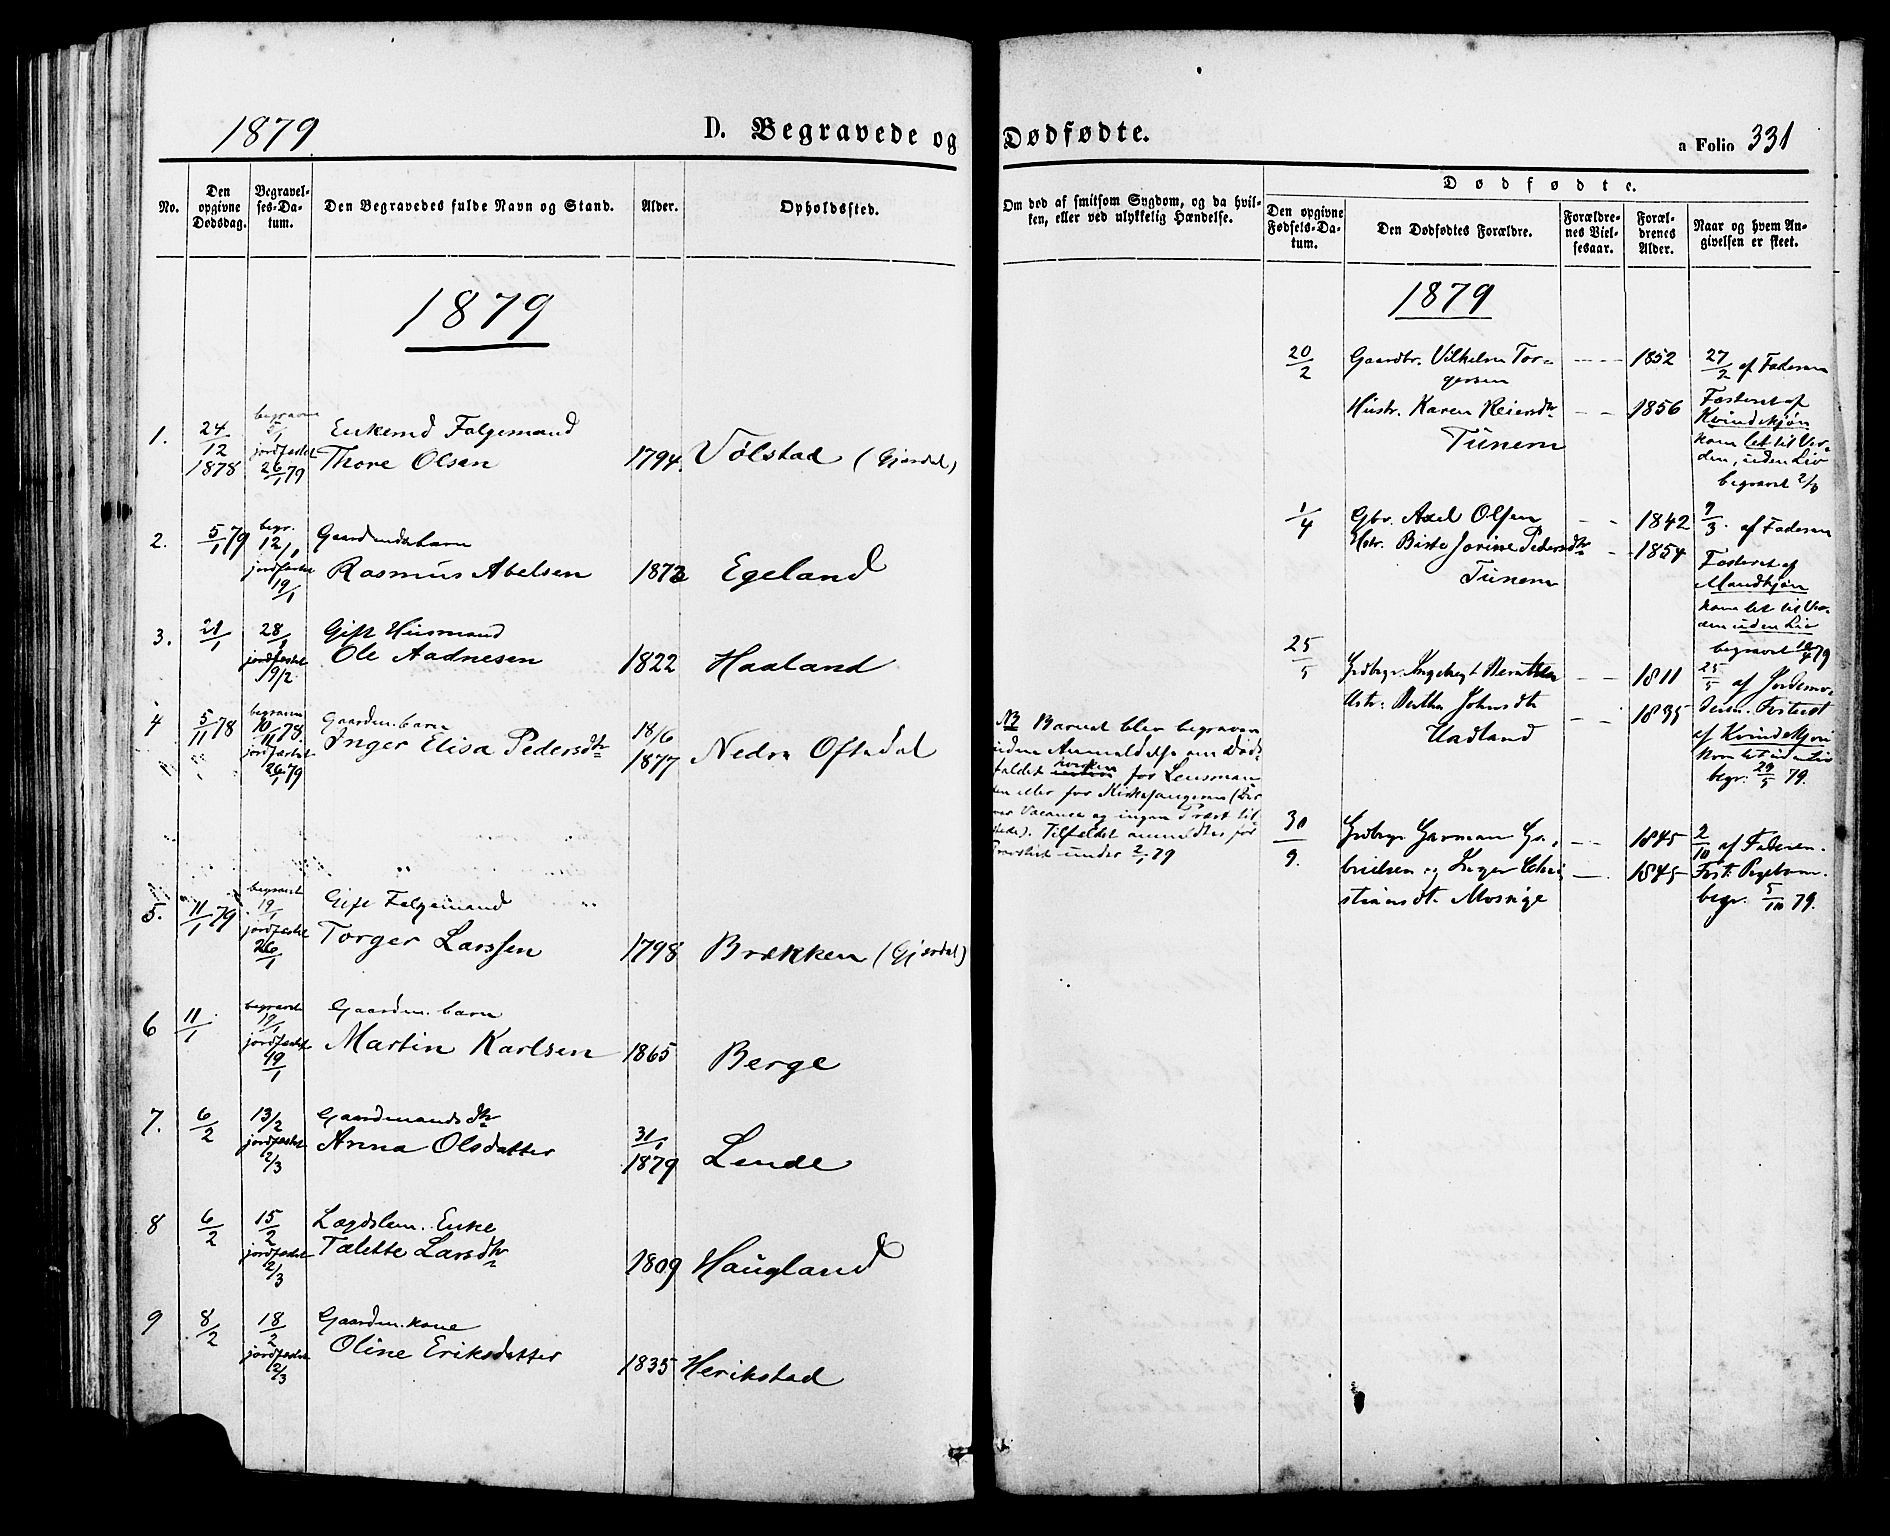 1879
D. Begravede og
Dødfødte.
a Folio 331
No.
Den opgivne Dødsdag.
Begravelses-Datum.
Den Begravedes fulde Navn og Stand.
Alder.
Opholdssted.
Om død af smitsom Sygdom, og da hvilken, eller ved ulykkelig Hændelse.
Dødfødte.
Den opgivne Fødsels-Datum.
Den Dødfødtes Forældre.
Forældrenes Vielsesaar.
Forældrenes Alder.
Naar og hvem Angivelsen er skeet.
1879
1. 24/12 1878 begraven 5/1 jordfæstet 26/1 79
Enkemd Følgemand
Thore Olsen 1794 Vølstad (Gjesdal)
2. 5/1 79 begr. 12/1 jordfæstet 19/1
Gaardmdsbarn
Rasmus Abelsen 1873 Egeland
3. 21/1 28/1 jordfæstet 9/2
Gift Husmand
Ole Aadnesen 1822 Haaland
4 5/11 78 begraven 10/11 78 jordfæstet 26/1 79
Gaardm. barn
Inger Elisa Pedersdtr 18/6 1877 Nedre Oftedal
5. 11/1 79 begravet 19/1 jordfæstet 26/1
Gift Følgemand
Torger Larssen 1798 Brækken (Gjesdal)
6 11/1 begravet 19/1 jordfæstet 19/1
Gaardm. barn
Martin Karlsen 1865 Berge
7. 6/2 13/2 jordfæstet 2/3
Gaardmands dtr
Anna Olsdatter 31/1 1879 Lende
8 6/2 15/2 jordfæstet 2/3
Lægdslem. Enke
Talette Larsdtr 1809 Haugland
9 8/2 18/2 jordfæstet 2/3
Gaardm. kone
Oline Eriksdatter 1835 Herikstad
NB Barnet blev begraven
uden Anmeldelse om Døds-
faldet hverken for Lensman-
den eller for Kirkesangeren (Der
var Vacance og ingen Præst til-
stede). Tilfældet anmeldtes for
Provstiet under 2/1 79
1879
20/2 Gaardbr. Vilhelm Tor- 1852 27/2 af Faderen
gersen
Hustr. Karen Reiersdtr 1856 Fosteret af
Tunem Kvindekjøn
kom let til Ver-
den, uden Liv
begravet 2/3
1/4 Gbr. Axel Olsen 1842 7/3 af Faderen
Hstr. Birte Jorine Pedersdtr 1854 Fosteret af
Tunem Mandkjøn
kom let til Ver-
den uden Liv
begravet 79
25/5 Grdbgr. Ingebregt 1811 25/5 af Jordemo-
Hstr: Bertha Johnsdtr 1835 deren. Fosteret
Uadland af Kvindekjøn
Kom let uden Liv
begr. 29/5 79.
30/9. Grdbgr Herman Ga- 1845 2/10 af Faderen.
brielsen og Inger Chri- 1845 Fost. Pigebarn.
stiansdt. Mossige begr. 5/10 79.